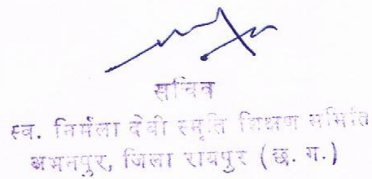 सचिव
स्व. निर्मला देवी स्मृति शिक्षण समिति
अभनपुर, जिला रायपुर (छ. ग.)